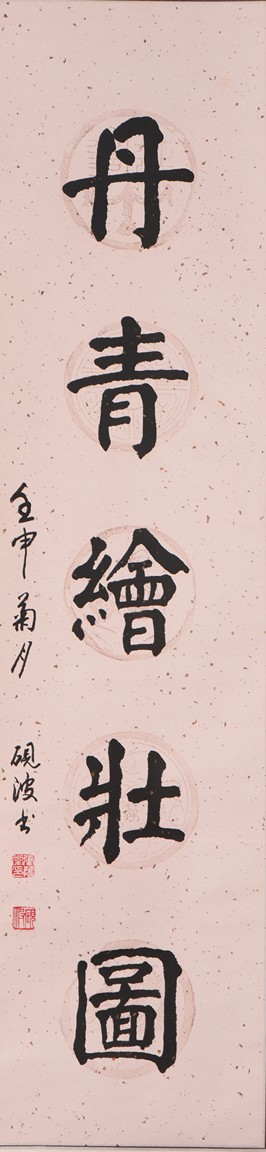 丹青繪壯圖
壬申菊月 硯波书